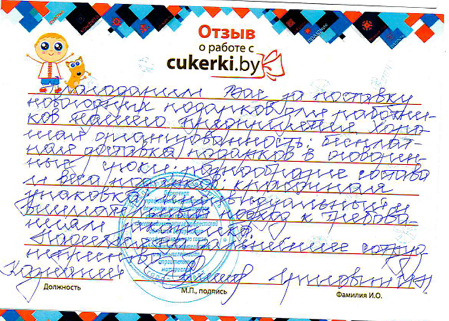 Отзыв
о работе с
cukerki.by
Благодарим Вас за поставку
новогодних подарков для работни-
ков нашего предприятия. Хоро-
шая организованность: бесплат-
ная доставка подарков в оговорен-
ные сроки, разнообразие состава
и веса подарков, красочная
упаковка, индивидуальный,
внимательный подход к требова-
ниям заказчика.
Надеемся на дальнейшее сотруд
ничество.
Должность
М.П., подпись
Фамилия И.О.